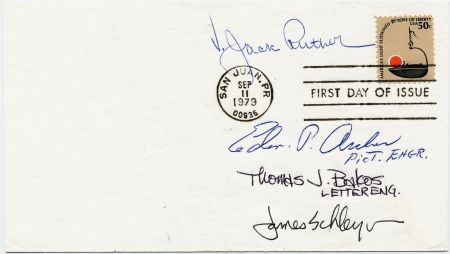 V. Jack Ruther
AMERICA'S LIGHT SUSTAINED BY LOVE OF LIBERTY
USA 50c
SAN JUAN, PR
SEP
11
1979
00936
FIRST DAY OF ISSUE
P. Archer
PICT. ENGR.
Thomas J. Bakos
LETTER ENG.
James Schleyer